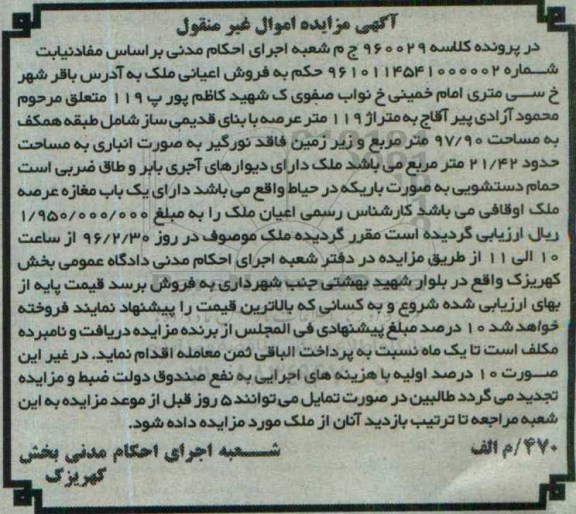 آگهی مزایده اموال غیر منقول
در پرونده کلاسه ۹۶۰۰۲۹ ج م شعبه اجرای احکام مدنی براساس مفادنیابت
شماره ۹۶۱۰۱۱۴۵۴۱۰۰۰۰۰۲ حکم به فروش اعیانی ملک به آدرس باقر شهر
خ سی متری امام خمینی خ نواب صفوی ک شهید کاظم پور پ ۱۱۹ متعلق مرحوم
محمود آزادی پیر آقاج به متراژ ۱۱۹ متر عرصه با بنای قدیمی ساز شامل طبقه همکف
به مساحت ۹۷/۹۰ متر مربع و زیر زمین فاقد نورگیر به صورت انباری به مساحت
حدود ۲۱/۴۲ متر مربع می باشد ملک دارای دیوارهای آجری بابر و طاق ضربی است
حمام دستشویی به صورت باریکه در حیاط واقع می باشد دارای یک باب مغازه عرصه
ملک اوقافی می باشد کارشناس رسمی اعیان ملک را به مبلغ ۱/۹۵۰/۰۰۰/۰۰۰
ریال ارزیابی گردیده است مقرر گردیده ملک موصوف در روز ۹۶/۲/۳۰ از ساعت
۱۰ الی ۱۱ از طریق مزایده در دفتر شعبه اجرای احکام مدنی دادگاه عمومی بخش
کهریزک واقع در بلوار شهید بهشتی جنب شهرداری به فروش برسد قیمت پایه از
بهای ارزیابی شده شروع و به کسانی که بالاترین قیمت را پیشنهاد نمایند فروخته
خواهد شد ۱۰ درصد مبلغ پیشنهادی فی المجلس از برنده مزایده دریافت و نامبرده
مکلف است تا یک ماه نسبت به پرداخت الباقی ثمن معامله اقدام نماید. در غیر این
صورت ۱۰ درصد اولیه با هزینه های اجرایی به نفع صندوق دولت ضبط و مزایده
تجدید می گردد طالبین در صورت تمایل می توانند ۵ روز قبل از موعد مزایده به این
شعبه مراجعه تا ترتیب بازدید آنان از ملک مورد مزایده داده شود.
۴۷۰/م الف شعبه اجرای احکام مدنی بخش
کهریزک